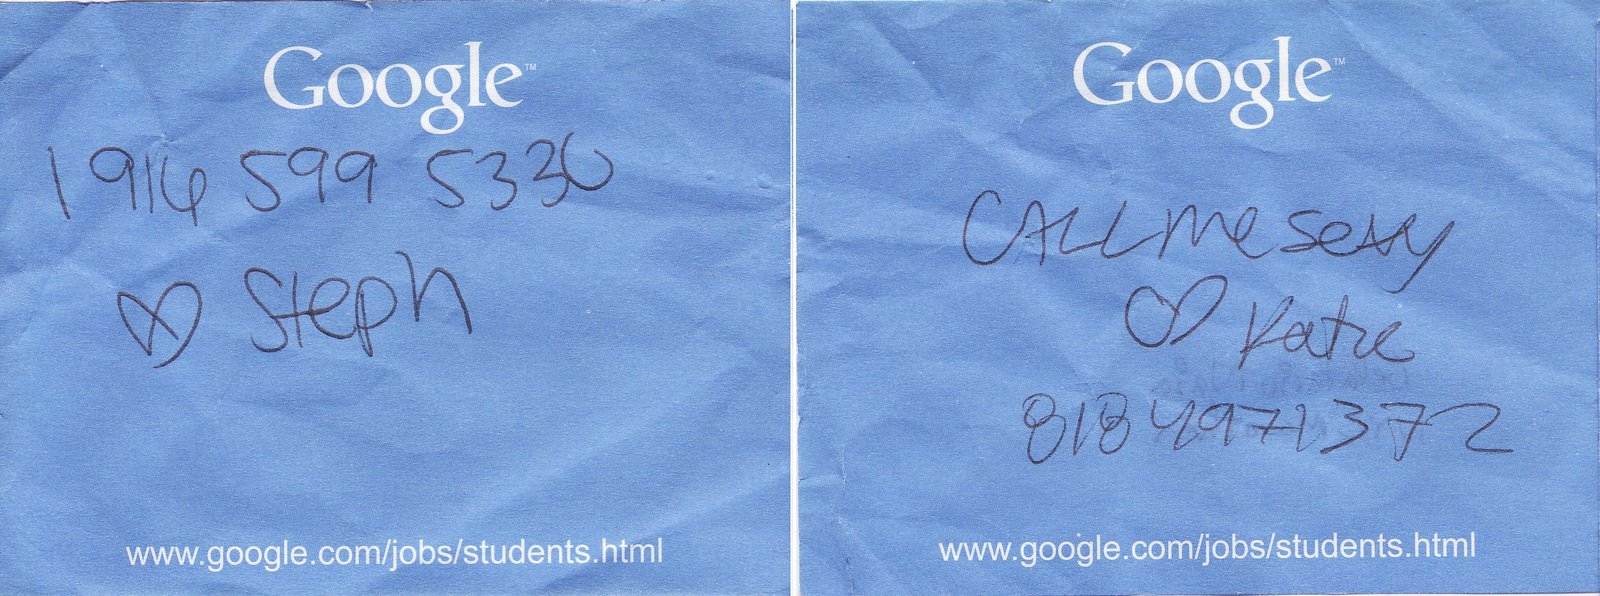 Google™
1 916 599 5330
♡ Steph
www.google.com/jobs/students.html
Google™
CALL me sexy
♡ Katie
818 4971372
www.google.com/jobs/students.html